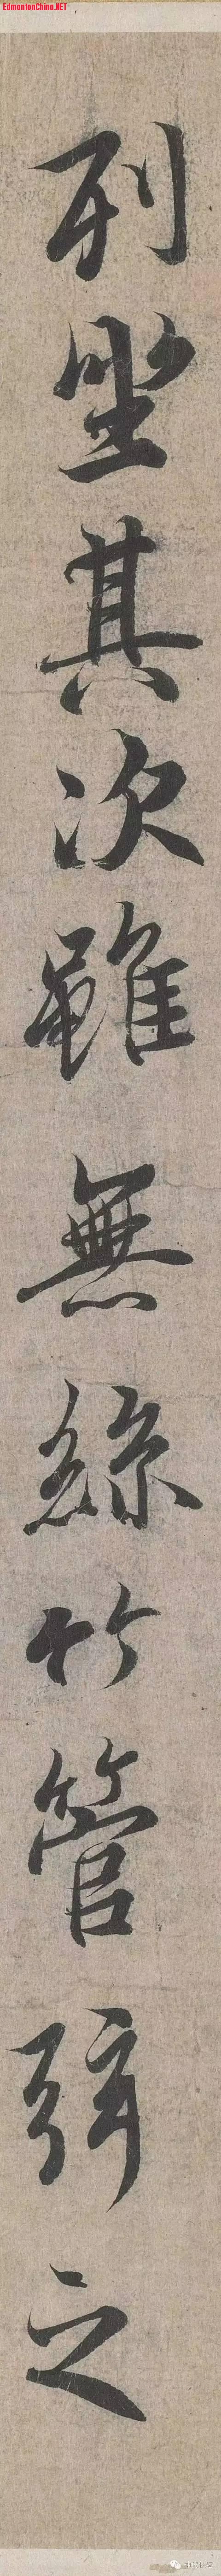 EdmontonChina.NET
列坐其次雖無絲竹管弦之